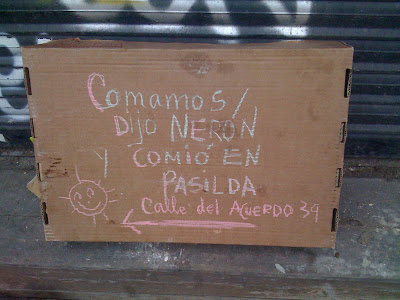 Comamos/
DIJO NERÓN
Y COMIÓ EN
PASILDA
Calle del Acuerdo 39